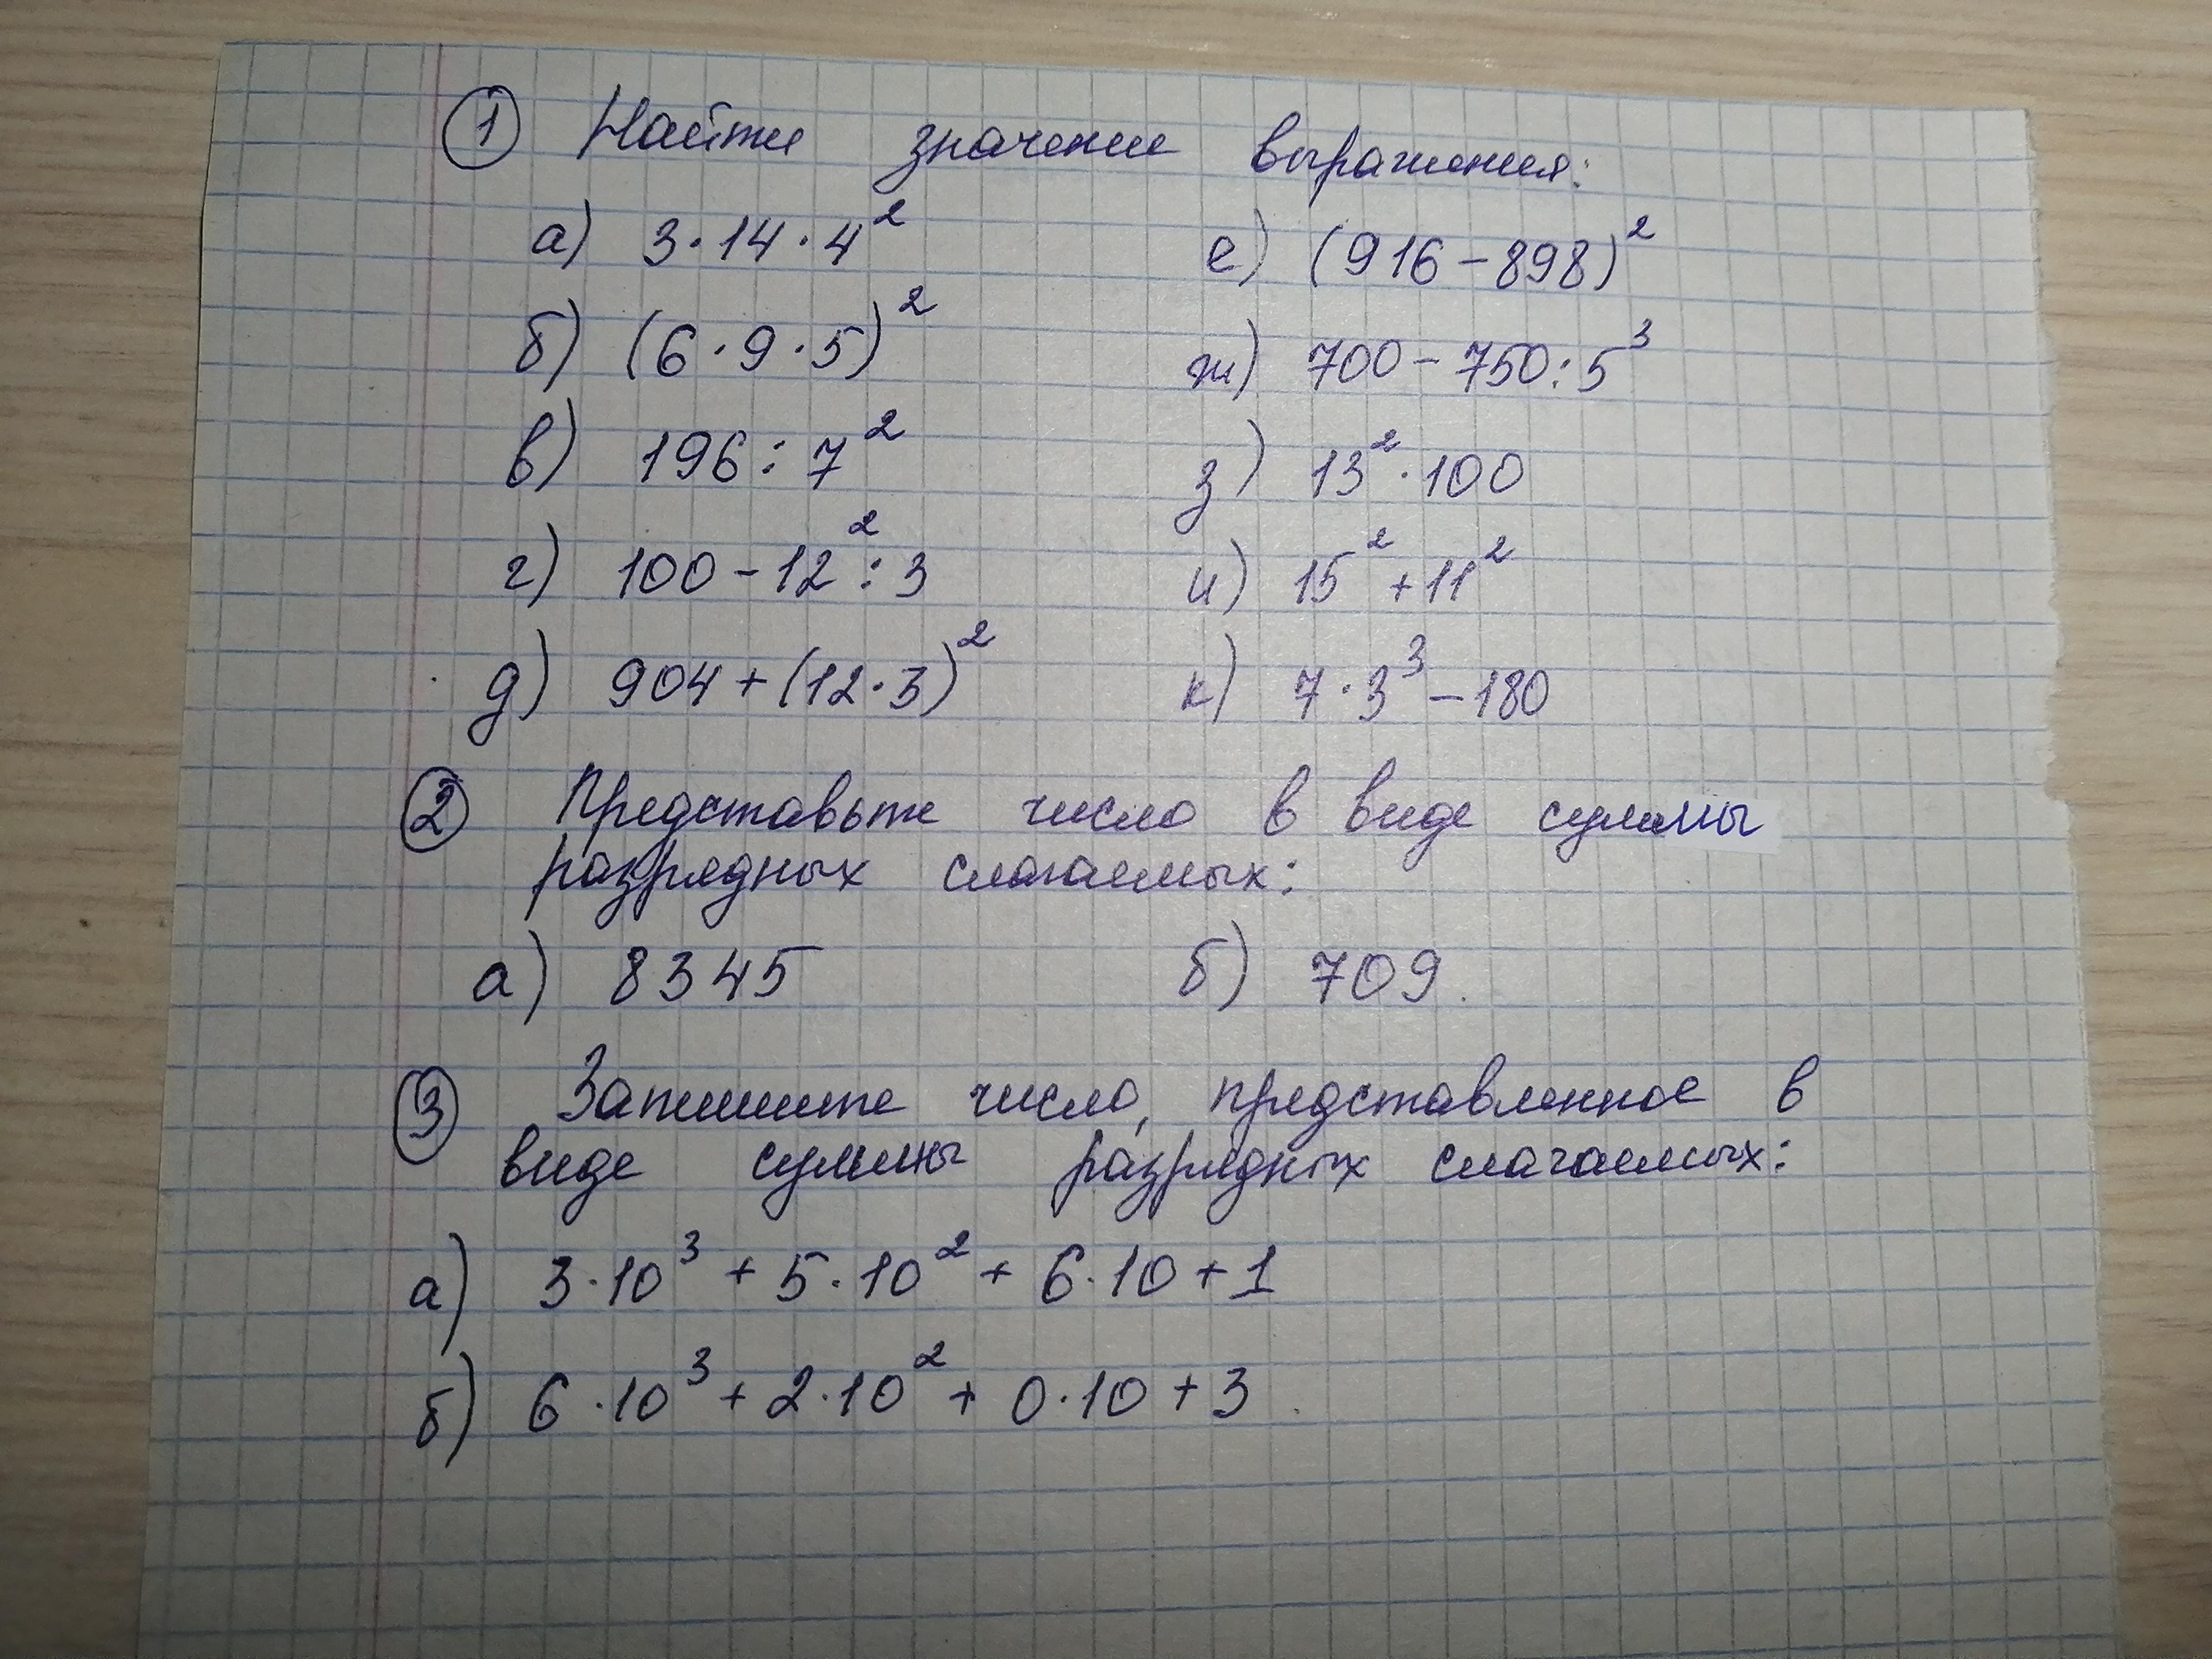 ① Найти значение выражения:
а) 3·14·4² е) (916-898)²
б) (6·9·5)² ж) 700-750:5³
в) 196:7² з) 13²·100
г) 100-12²:3 и) 15²+11²
д) 904+(12·3)² к) 7·3³-180
② Представьте число в виде суммы
разрядных слагаемых:
а) 8345 б) 709.
③ Запишите число, представленное в
виде суммы разрядных слагаемых:
а) 3·10³+5·10²+6·10+1
б) 6·10³+2·10²+0·10+3.